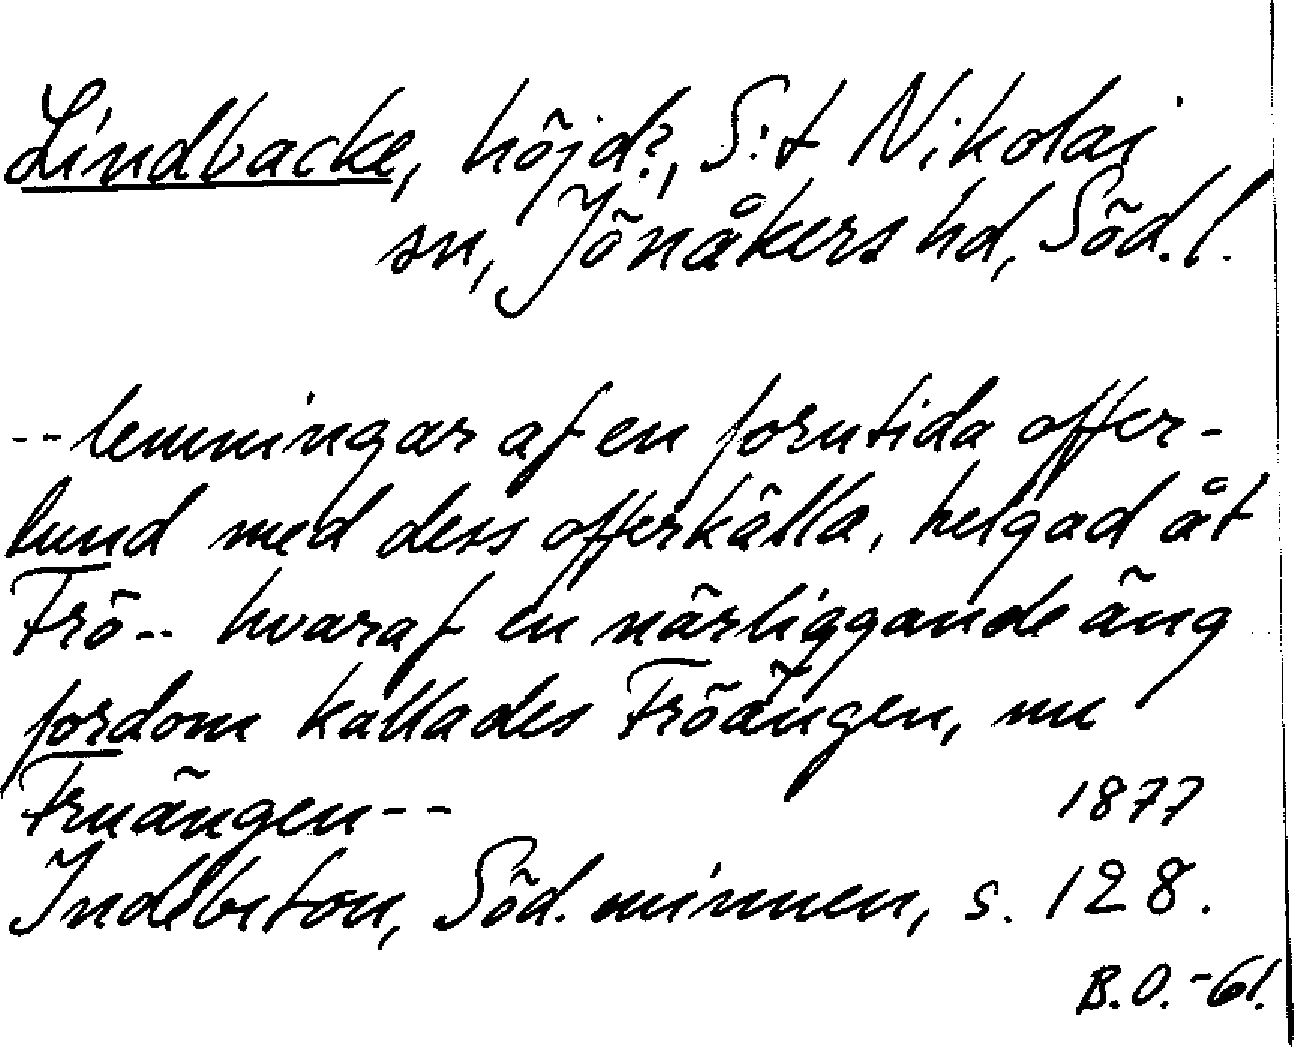 Lindbacke, höjd?, S:t Nikolai
sn, Jönåkers hd, Söd. l.
-- lemningar af en forntida offer-
lund med dess offerkälla, helgad åt
Frö -- hvaraf en närliggande äng
fordom kallades Fröängen, nu
Fruängen --
1877
Indebetou, Söd. minnen, s. 128.
B.O. -61.